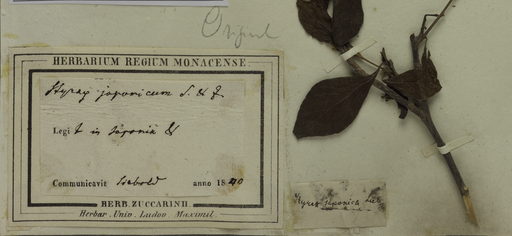 Original
HERBARIUM REGIUM MONACENSE
Styrax japonicum S. & Z.
Legit in Japonia
Communicavit Siebold anno 1840
HERB. ZUCCARINII
Herbar. Univ. Ludov. Maximil.
Styrax japonica